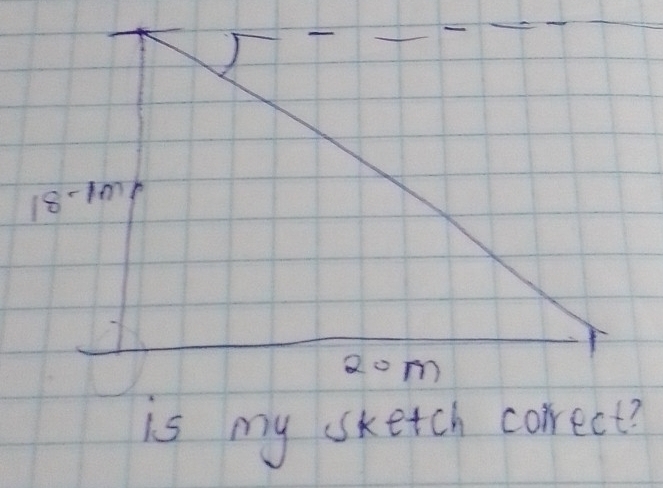 18-1m
20m
is my sketch correct?